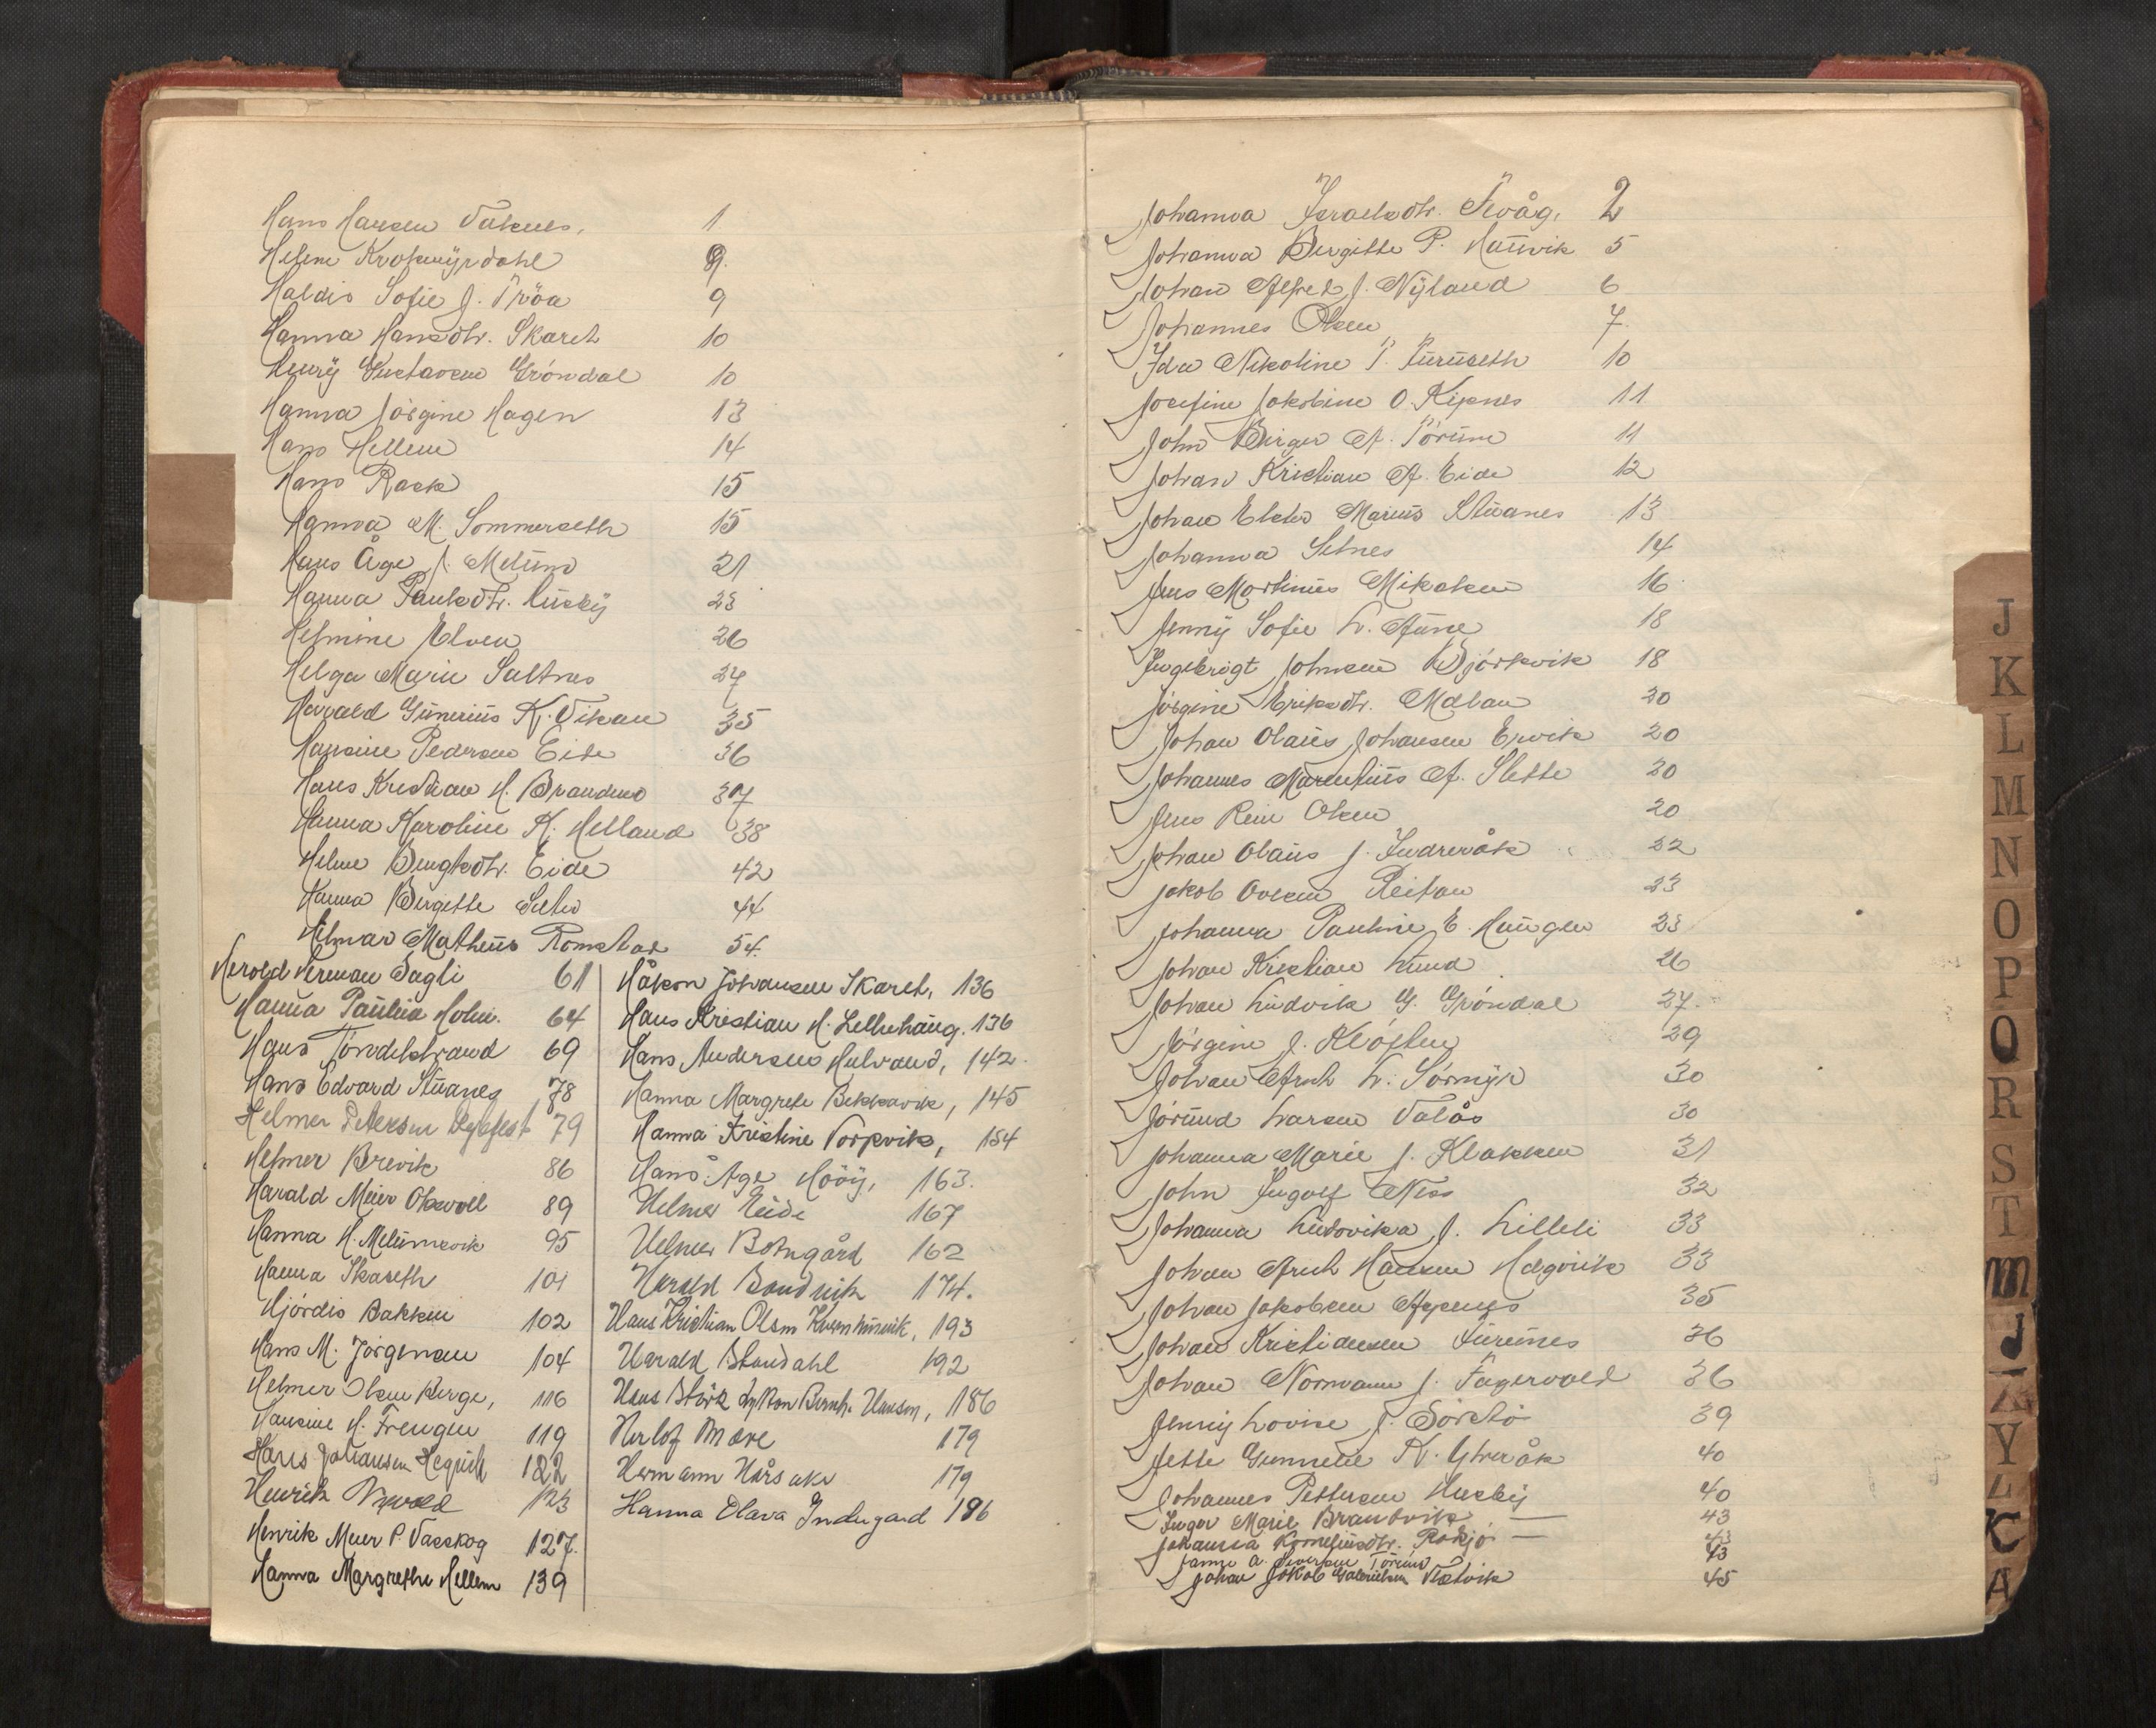 Hans Hansen Vaknes, 1
Helene Krokmyrdahl 9.
Haldis Sofie J. Tröa 9
Hanna Hansdtr. Skaret 10
Henry Gustavsen Gröndal 10
Hanna Jörgine Hagen 13
Hans Hellem 14
Hans Rask 15
Hanna M. Sommerseth 15
Hans Åge J. Melum 21
Hanna Paulsdtr. Husby 23
Helmine Elven 26
Helga Marie Saltnes 27
Harald Gunerius K. Vikan 35
Hansine Pedersen Eide 36
Hans Kristian H. Brandmo 37
Hanna Karoline K. Helland 38
Helene Bengtsdtr. Eide 42
Hanna Birgitte Selter 44
Helmar Matheus Romstad 54.
Herold Herman Sagli 61
Hanna Paulina Holm. 64
Hans Töndelstrand 69
Hans Edvard Stuanes 78
Helmer Petersen 79
Helmer Brevik 86
Harald Meier Oksvoll 89
Hanna H. Melumsvik 95
Hanna Skareth 101
Hjördis Bakken 102
Hans M. Jörgensen 104
Helmer Olsen Berge, 116
Hansine H. Frengen 119
Hans Johansen Hegvik 122
Henrik 123
Henrik Meier P. Vasskog 127.
Hanna Margrethe Hellem 139
Håkon Johansen Skaret, 136
Hans Kristian H. Lillehaug. 136
Hans Andersen Hulvand, 142.
Hanna Margrete Bekkavik, 145
Hanna Kristine Torpvik, 154
Hans Åge Hööy, 163.
Helmer Eide 167
Helmer Botngård 162
Harald Sandvik 174.
Hans Kristian Olsen 193
Harald Standahl 192
Hans Bernh. Hansen, 186
Herlof Mære 179
Hermann Hårsaker 179
Hanna Olava Indergard 186
Johanna Israelsdtr. Tevåg, 2
Johanna Birgitte P. Hausvik 5
Johan Alfred J. Nyland 6
Johannes Olsen 7.
Ida Nikoline P. Furuseth 10
Josefine Jakobine O. Kipnes 11
John Birger A. Törum 11
Johan Kristian A. Eide 12
Johan Elster Marius Stuanes 13
Johanna Setnes 14
Jens Martinus Mikalsen 16.
Jenny Sofie L. Aune 18
Ingebrigt Johnsen Björkvik 18
Jörgine Eriksdtr. Modlan 20
Johan Olaus Johansen Ervik 20
Johannes Marentius A. Slette 20
Jens Rein Olsen 20
Johan Olaus J. Indrevåk 22
Jakob Ovesen Reitan 23
Johanna Pauline E. Haugen 23
Johan Kristian Lund 26
Johan Ludvik G. Gröndal 27.
Jörgine J. Klöften 29
Johan Arnt L. Sörmyr 30
Jörund Larsen Valås 30
Johanna Marie J. Klakken 31
John Ingolf Ness 32
Johanna Ludovika J. Lilleli 33
Johan Arnt Hansen Hegvik 33
Johan Jakobsen Aspenes 35
Johan Kristiansen Furunes 36
Johan Normann J. Fagervold 36
Jenny Lovise J. Sörstö 39
Jette Gunnelie K. Ytreråk 40
Johannes Pettersen Husby 40
Inger Marie Brandvik — 43
Johanna Korneliusdtr. Roksjö — 43
Janna A. Iversen Törum 43
Johan Jakob Gabrielsen Tistvik 45
J
K
L
M
N
O
P
Q
R
S
T
M
J
Z
Y
Z
K
A